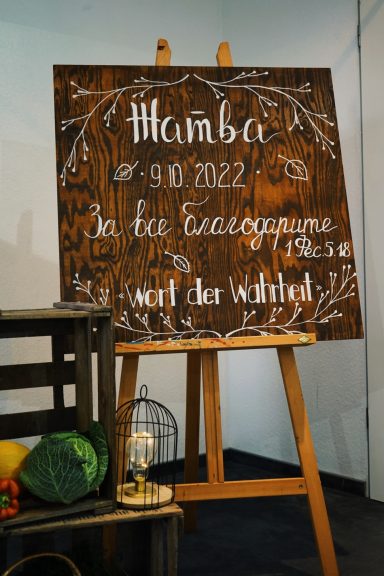 Жатва
· 9.10.2022 ·
За все благодарите
1 Фес. 5.18
«Wort der Wahrheit»